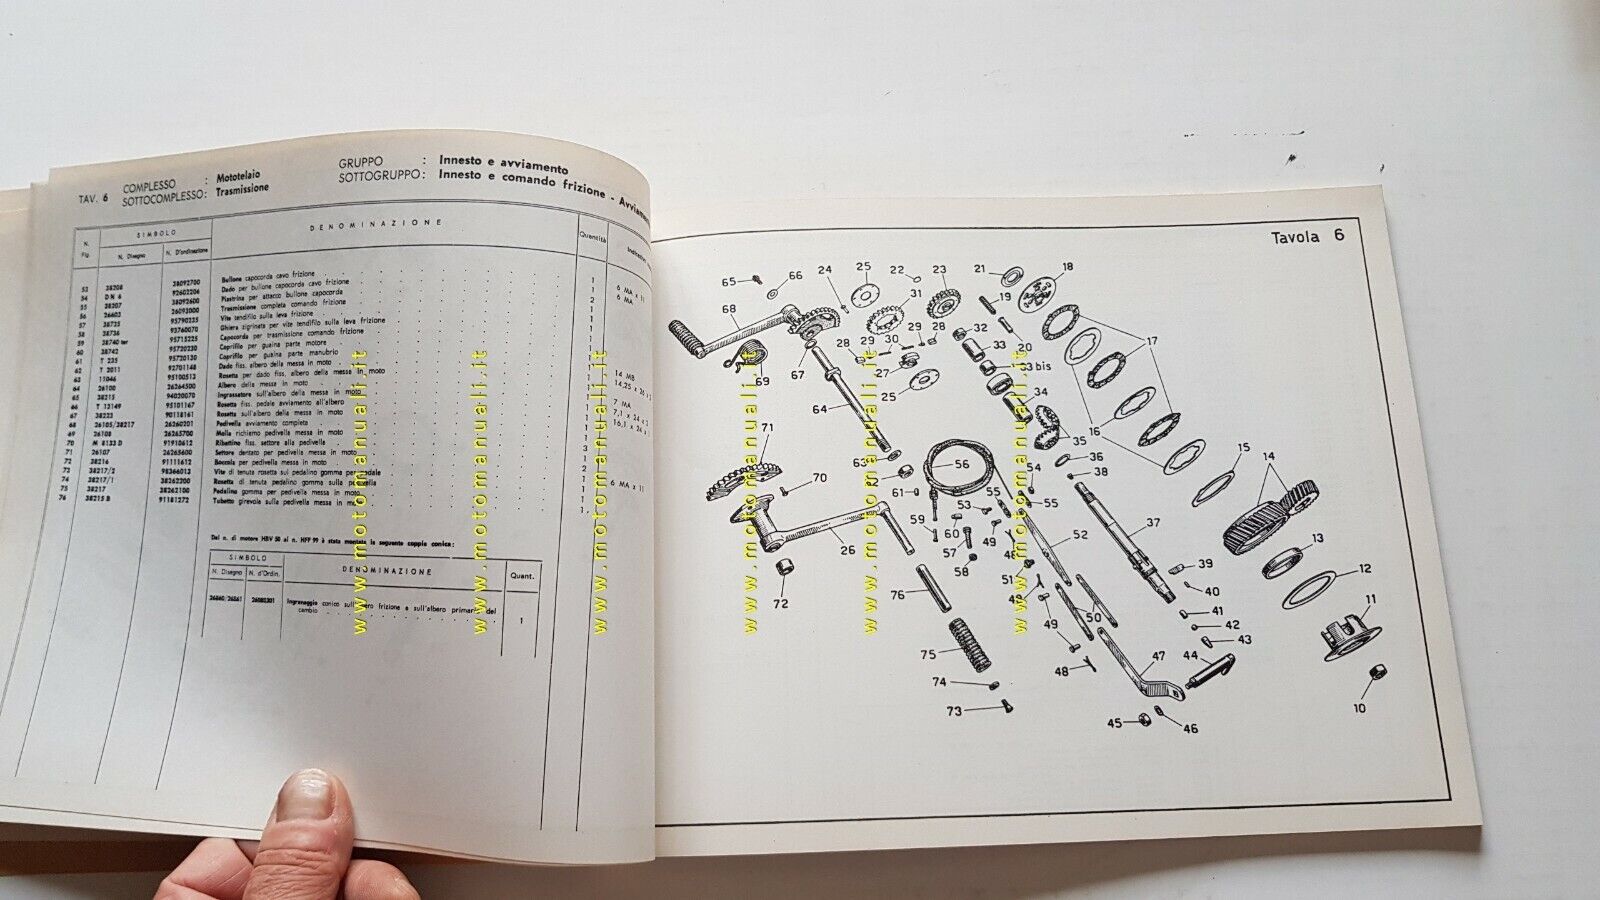 TAV. 6
COMPLESSO : Mototelaio
SOTTOCOMPLESSO: Trasmissione
GRUPPO : Innesto e avviamento
SOTTOGRUPPO: Innesto e comando frizione - Avviamen
N. Fig.
SIMBOLO
N. Disegno
N. D'ordinazione
DENOMINAZIONE
Quantità
53 38208 38092700 Bullone capocorda cavo frizione 1 6 MA x 11
54 DN 6 92602206 Dado per bullone capocorda cavo frizione 1 6 MA
55 38207 38092600 Piastrina per attacco bullone capocorda 2
56 26603 26093000 Trasmissione completa comando frizione 1
57 38735 95790235 Vite tendifilo sulla leva frizione 1
58 38736 92760070 Ghiera zigrinata per vite tendifilo sulla leva frizione 1
59 38740 ter 95715225 Capocorda per trasmissione comando frizione 1
60 38742 95720230 Coprifilo per guaina parte motore 1
61 T 235 95720130 Coprifilo per guaina parte manubrio 1
62 T 2011 92701148 Dado fiss. albero della messa in moto 1 14 MB
63 11046 95100513 Rosetta per dado fiss. albero della messa in moto 1
64 26100 26264500 Albero della messa in moto 1
65 38215 94020070 Ingrassatore sull'albero della messa in moto 1 7 MA
66 T 12149 95101167 Rosetta fiss. pedale avviamento all'albero 1
67 38223 90118161 Rosetta sull'albero della messa in moto 1
68 26105/38217 26260201 Pedivella avviamento completa 1
69 26108 26265700 Molla richiamo pedivella messa in moto 1
70 M 8133 D 91910612 Ribattino fiss. settore alla pedivella 3
71 26107 26265600 Settore dentato per pedivella messa in moto 1
72 38216 91111612 Boccola per pedivella messa in moto 2
73 38217/2 98366013 Vite di tenuta rosetta sul pedalino gomma per pedale 1 6 MA x 11
74 38217/1 38262200 Rosetta di tenuta pedalino gomma sulla pedivella 1
75 38217 38262100 Pedalino gomma per pedivella messa in moto 1
76 38215 B 91181272 Tubetto girevole sulla pedivella messa in moto 1
Dal n. di motore HBV 50 al n. HFF 99 è stata montata la seguente coppia conica:
SIMBOLO
N. Disegno
N. d'Ordin.
DENOMINAZIONE
Quant.
26860/26861 26080301 Ingranaggio conico sull'albero frizione e sull'albero primario del
cambio 1
www.motomanuali.it
www.motomanuali.it
www.motomanuali.it
www.motomanuali.it
www.motomanuali.it
www.motomanuali.it
Tavola 6
65 66 24 25 22 23 21 18
68 31 19
28 29 30 29 28 32 33 20 17
69 67 27 25 33 bis
64 34
16 35
71 63 36 15 14
70 56 54 38
61 55 53 55
59 60 49 52 37 13
26 57 48 39 12
72 58 51 40
76 49 50 41 11
49 42
75 47 43
48 44
74
73 45 46 10